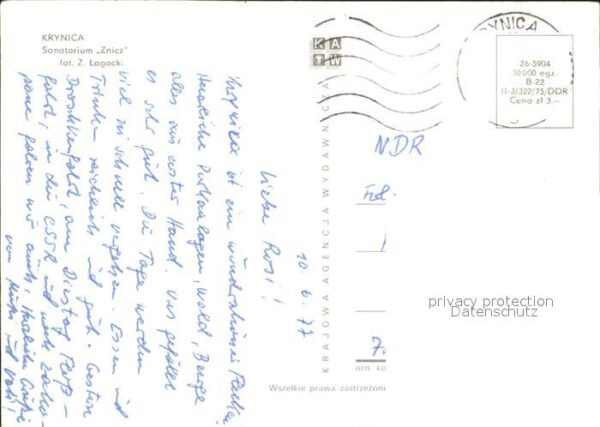 KRYNICA
Sanatorium „Znicz”
fot. Z. Łagocki
KAW
KRYNICA
26-5904
30 000 egz.
B-22
II-3/322/75/DDR
Cena zł 3.—
KRAJOWA AGENCJA WYDAWNICZA
NDR
Frl.
Wszelkie prawa zastrzeżon
ozn. ko
privacy protection
Datenschutz
10. 6. 77
Liebe Rosi!
ist ein wunderschöner
Herrliche Parkanlagen, Wald, Berge
alles aus erster Hand. Uns gefällt
es sehr gut. Die Tage werden
viel zu schnell vergehen. Essen und
Trinken reichlich und gut. Gestern
am Dienstag
in die ČSSR und nach Zako-
pane fahren wir auch. Herzliche Grüße
von und